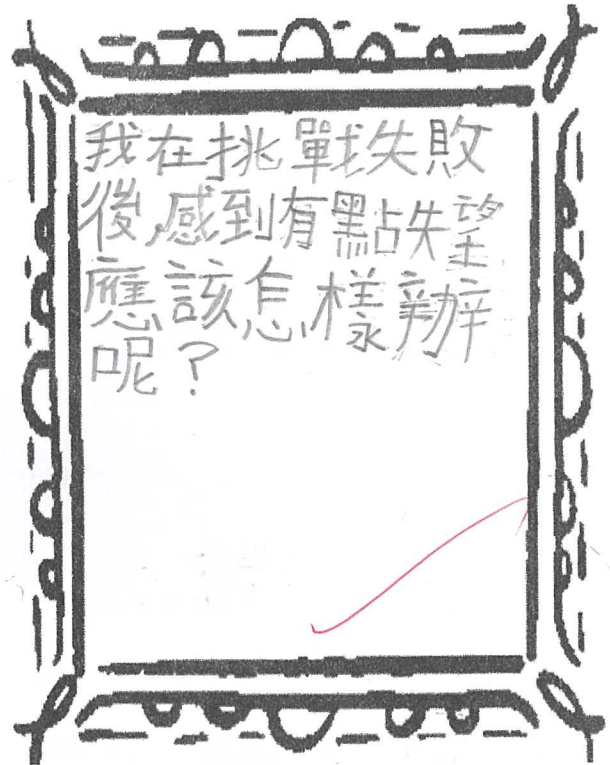 我在挑戰失敗
後,感到有點失望
應該怎樣辦
呢?